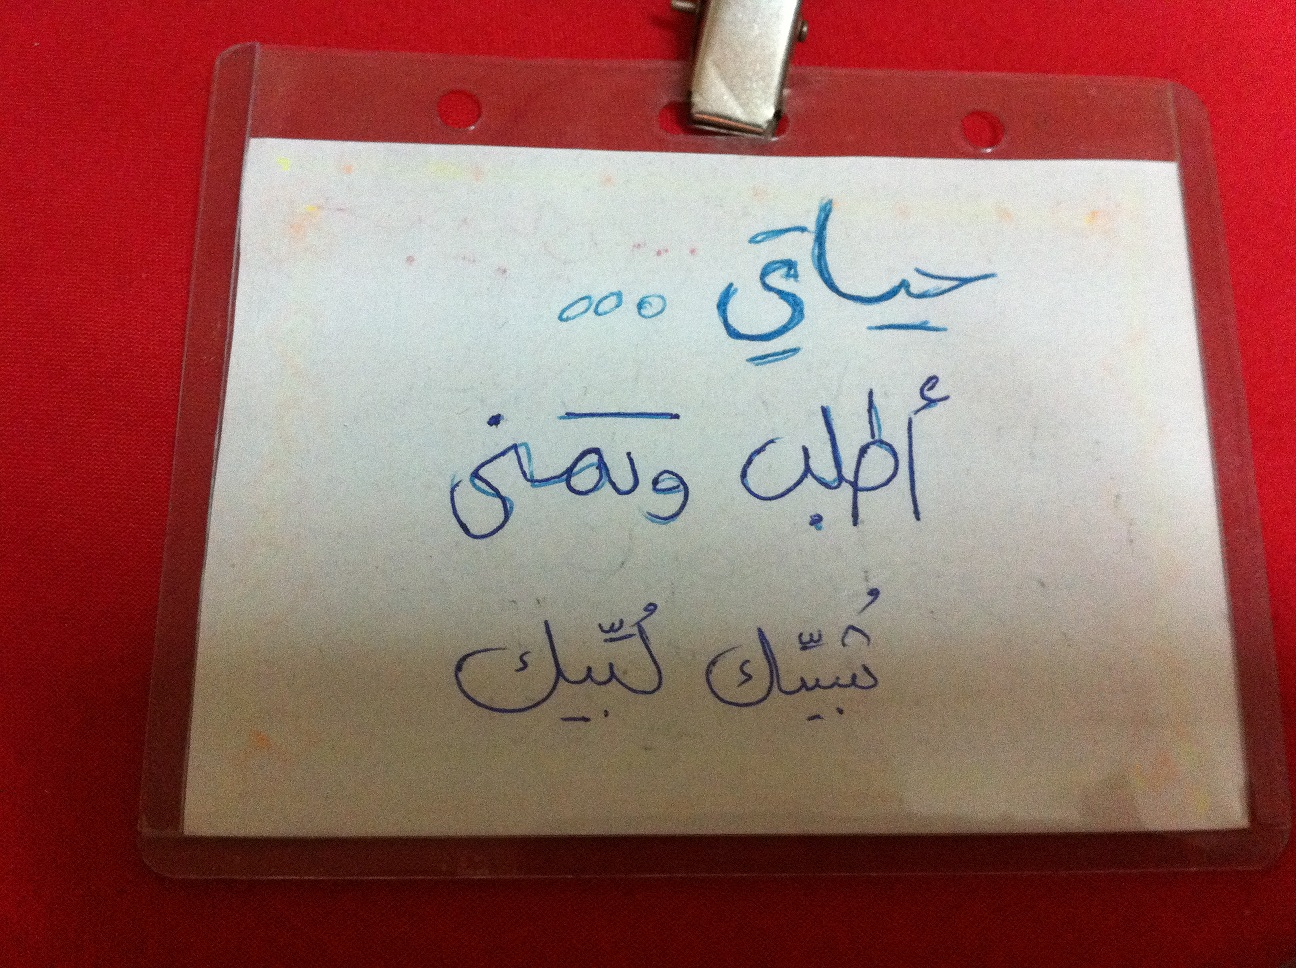 حياتي ...
أطلب وتمنى
شبيّك لُبّيك